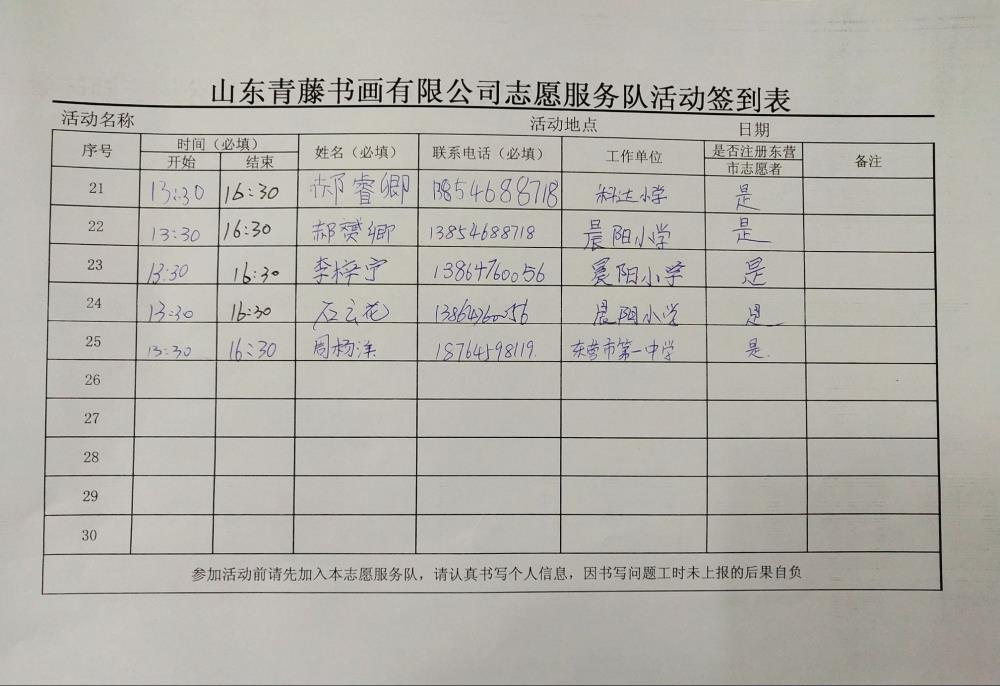 山东青藤书画有限公司志愿服务队活动签到表
活动名称 活动地点 日期
序号 时间（必填） 姓名（必填） 联系电话（必填） 工作单位 是否注册东营市志愿者 备注
开始 结束
21 13:30 16:30 郝睿卿 13854688718 科达小学 是
22 13:30 16:30 郝赟卿 13854688718 晨阳小学 是
23 13:30 16:30 李梓宁 13864760056 晨阳小学 是
24 13:30 16:30 石云花 13864760056 晨阳小学 是
25 13:30 16:30 周杨洋 18764598119. 东营市第一中学 是.
26
27
28
29
30
参加活动前请先加入本志愿服务队，请认真书写个人信息，因书写问题工时未上报的后果自负